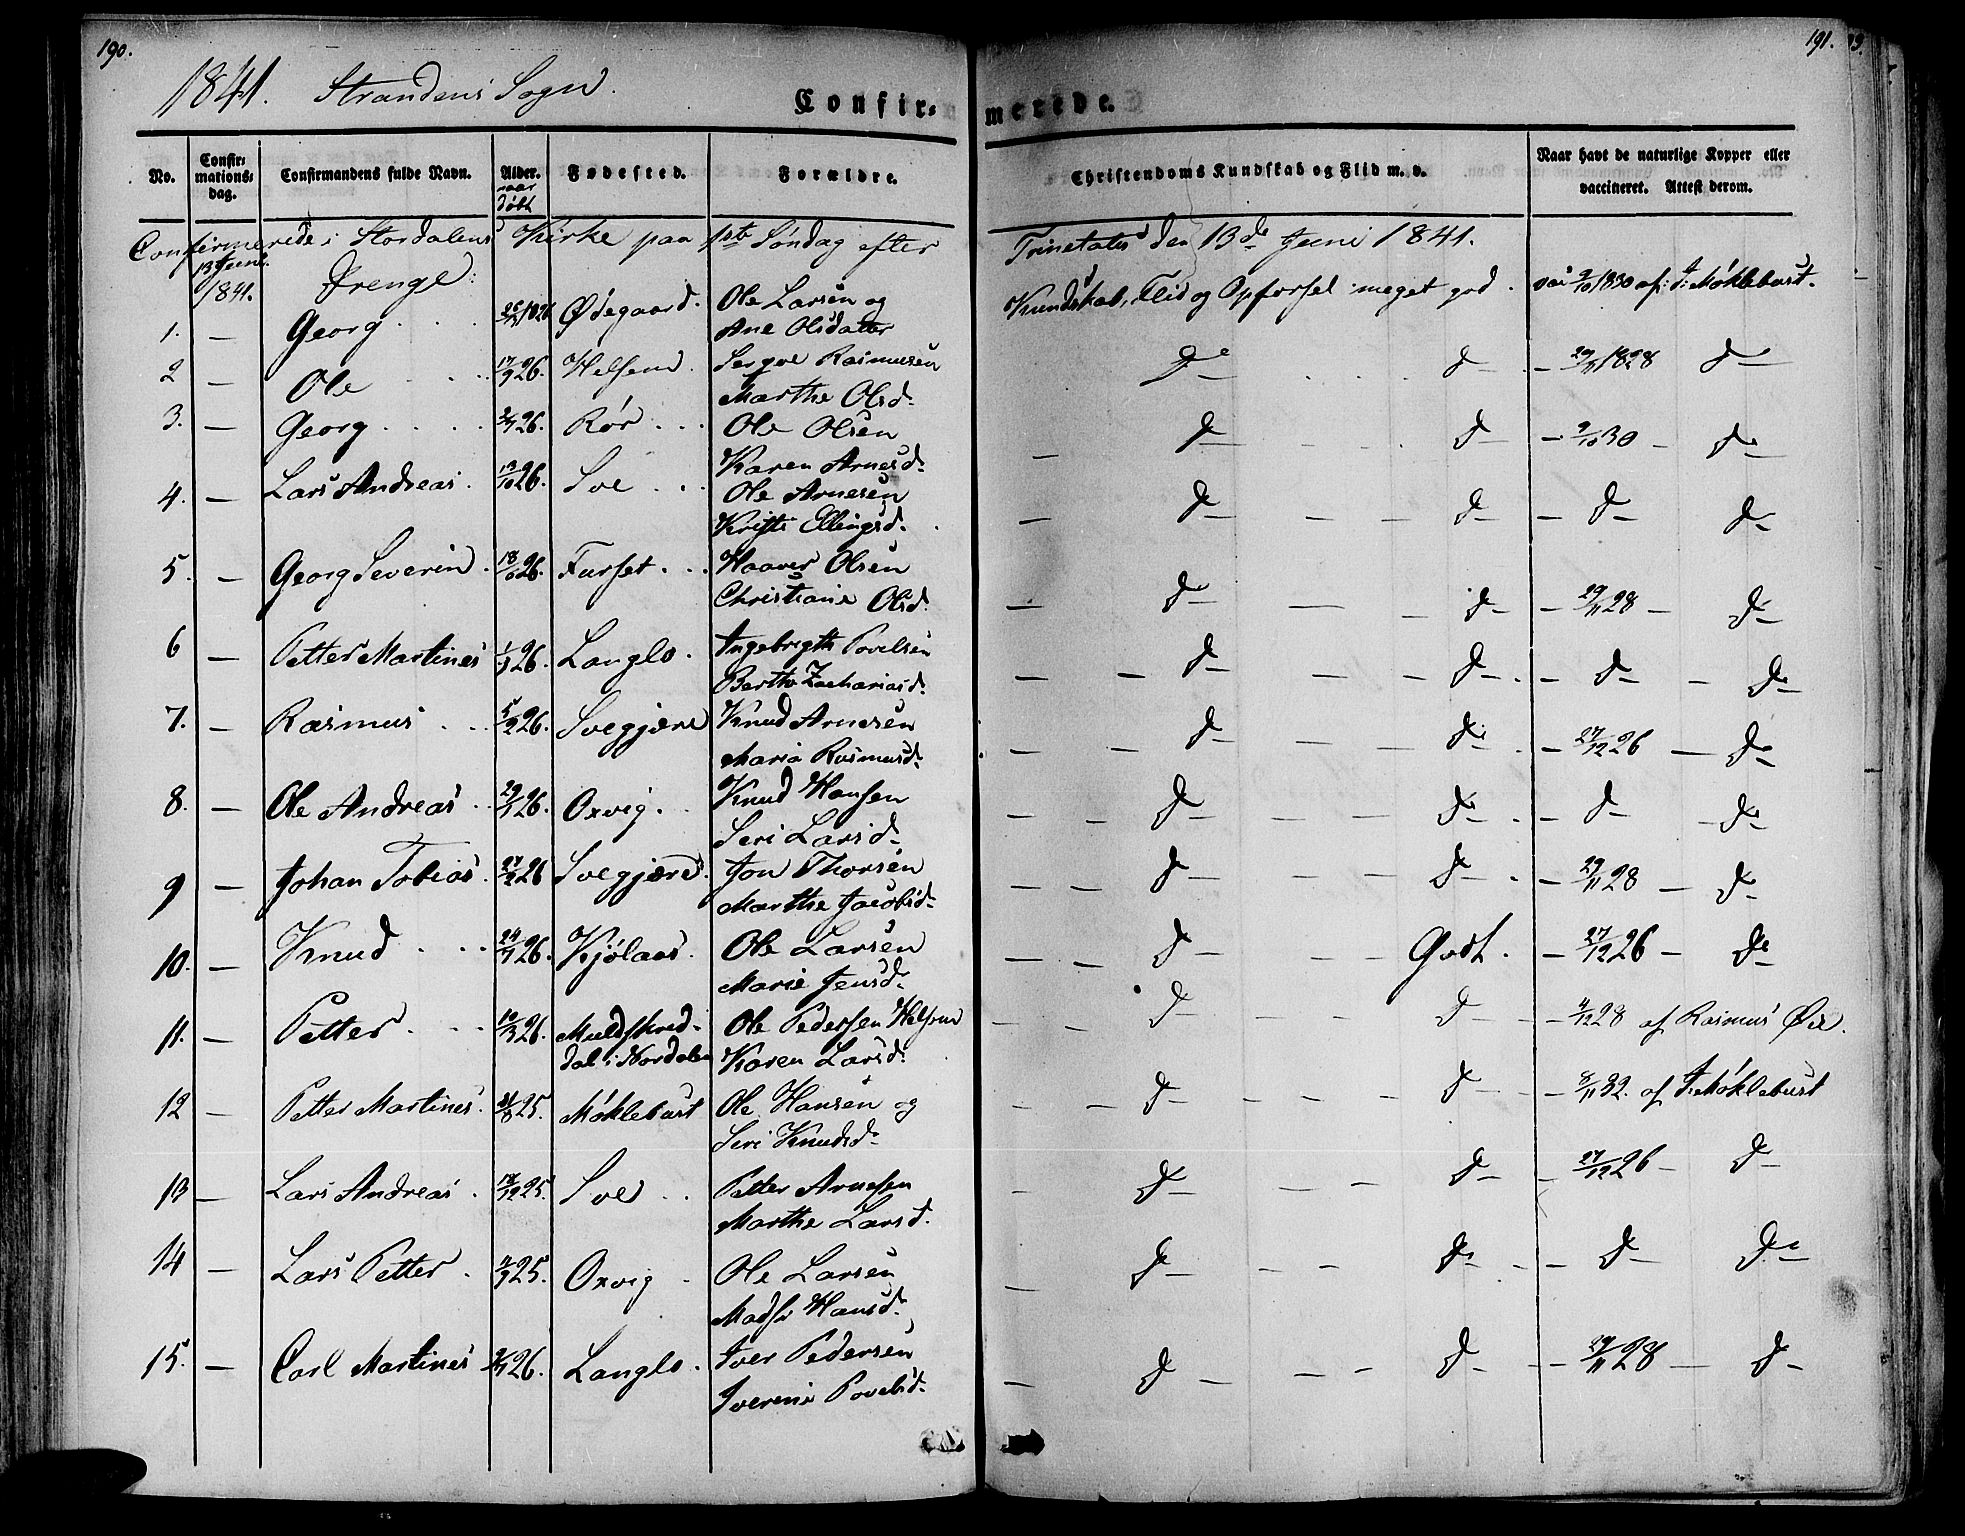 190.
1841. Strandens Sogn.
Confir-
No.
Confir-
mations-
dag.
Confirmandens fulde Navn.
Alder.
naar
døbt
Fødested.
Forældre.
Confirmerede i Stordalens Kirke paa 1ste Søndag efter
13 Juni
1841.
Drenge:
1. — Georg 1826 Ødegaard. Ole Larsen og
Ane Olsdatter
2 — Ole 17/9 26. Helsem Rasmusen
Marthe Olsd.
3. — Georg 26. Rør Ole Olsen
Karen Arnesd.
4. — Lars Andreas 13/10 26. Sve Ole Arnesen
Ellingsd.
5. — Georg Severin 18/6 26. Furset Haaver Olsen
Christiane Olsd.
6 — Petter Martines 26. Langlo Ingebrigth Povelsen
Berthe Zachariasd.
7. — Rasmus 5/2 26. Svegjære Knud Arnesen
Maria Rasmusd.
8. — Ole Andreas 29/1 26. Oxvig Knud Hansen
Seri Larsd.
9 — Johan Tobias 27/2 26 Svegjære Jon Thorsen
Marthe Jacobsd.
10. — Knud 26. Kjølaas Ole Larsen
Marie Jensd.
11. — Petter 10/3 26. Muldskred-
dal i Nordalen
Ole Pedersen Helsem
Karen Larsd.
12 — Petter Martines 25. Møklebust Ole Hansen og
Seri Knudsd.
13 — Lars Andreas 25. Sve Petter Arnesen
Marthe Larsd.
14 — Lars Petter 25. Oxvig Ole Larsen
Madsi Hansd.
15. — Carl Martines 26. Langlo Iver Pedersen
Iverine Povelsd.
191.
merede.
Christendoms Kundskab og Flid m. v.
Naar havt de naturlige Kopper eller
vaccineret. Attest derom.
Trinetatis den 13de Juni 1841.
Kundskab, Flid og Opførsel meget god. 9/10 1830 af Møklebust.
do do — 29/11 1828 do
— do do — 9/10 30 — do
— do do — do do
— do do — 29/11 28 — do
— do do — do — do
— do do — 27/12 26 — do
— do do — do do
— do do — 29/11 28 — do
— do Godt. — 27/12 26 — do
— do do — 4/12 28 af Rasmus Øie.
— do do — 8/11 32. af J. Møklebust
— do do — 27/12 26 — do
— do do — do do
— do do — 29/11 28 — do